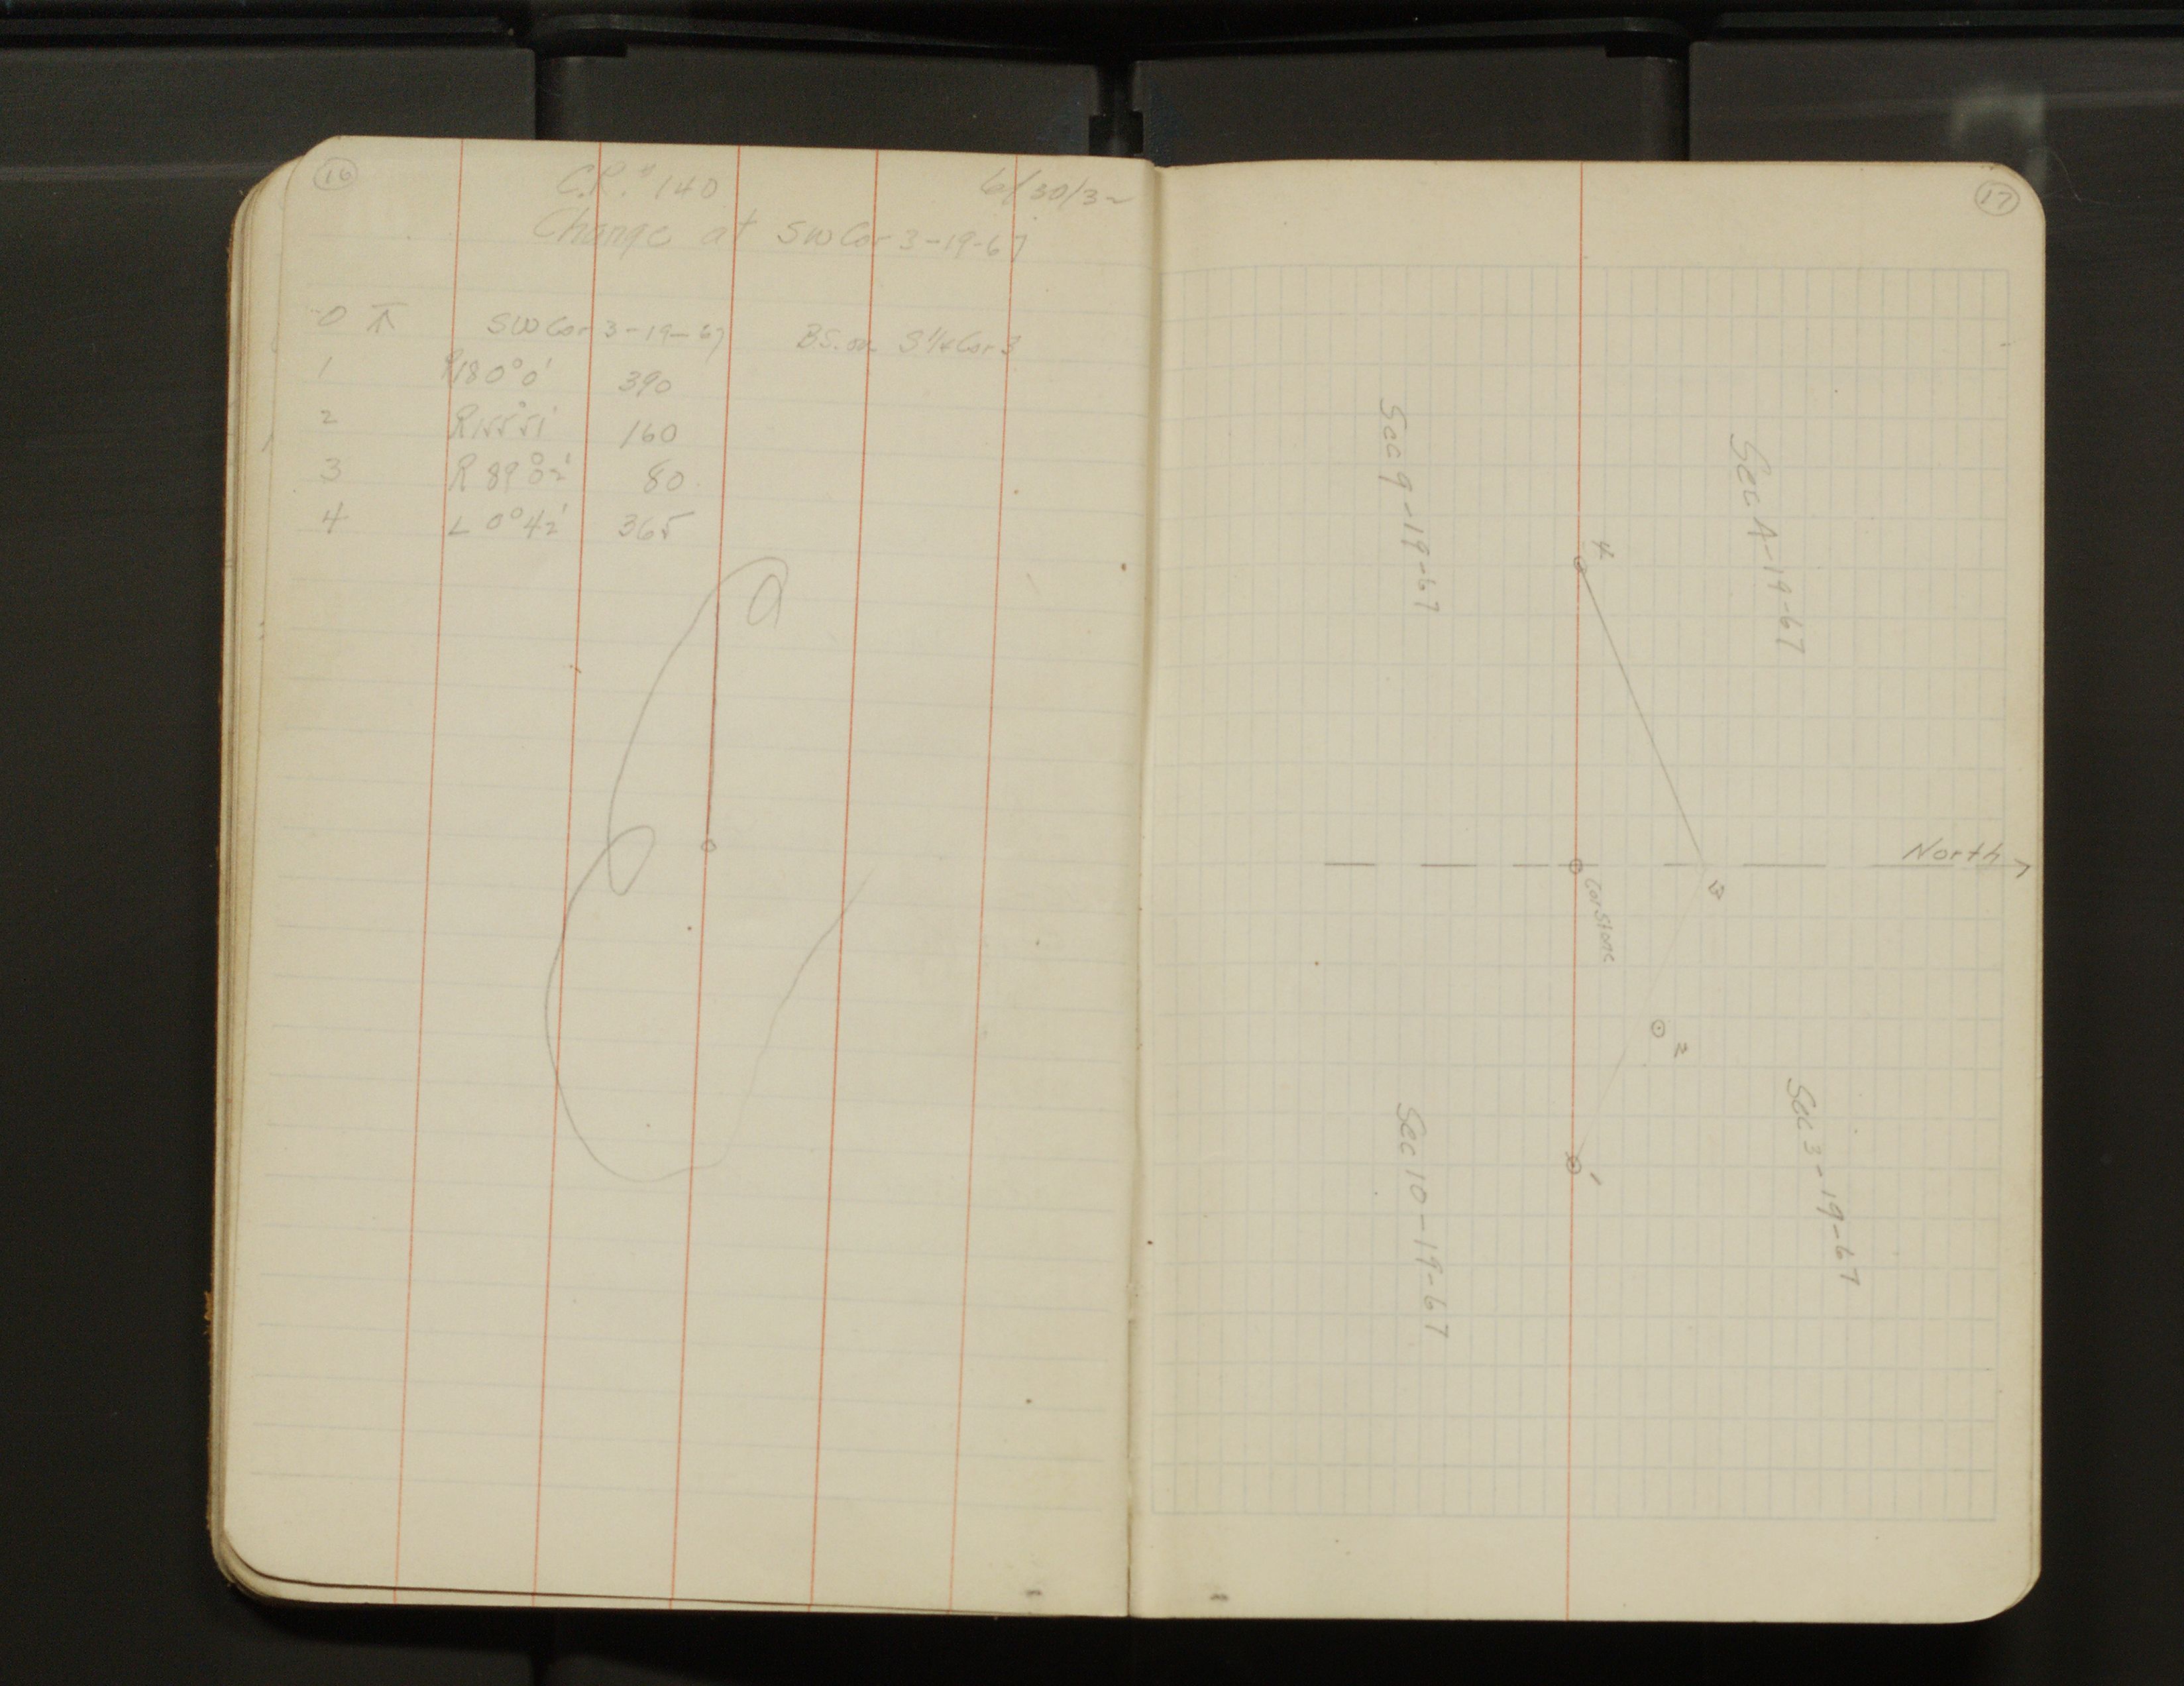 16
C.R. # 140 6/30/32
Change at SW Cor 3-19-67
0 ⊼ SW Cor 3-19-67 B.S. on S 1/4 Cor 3
1 R180°0' 390
2 R155°51' 160
3 R 89°02' 80
4 L 0°42' 365
17
Sec 9-19-67
Sec 4-19-67
4
North
Cor Stone
3
2
1
Sec 10-19-67
Sec 3-19-67